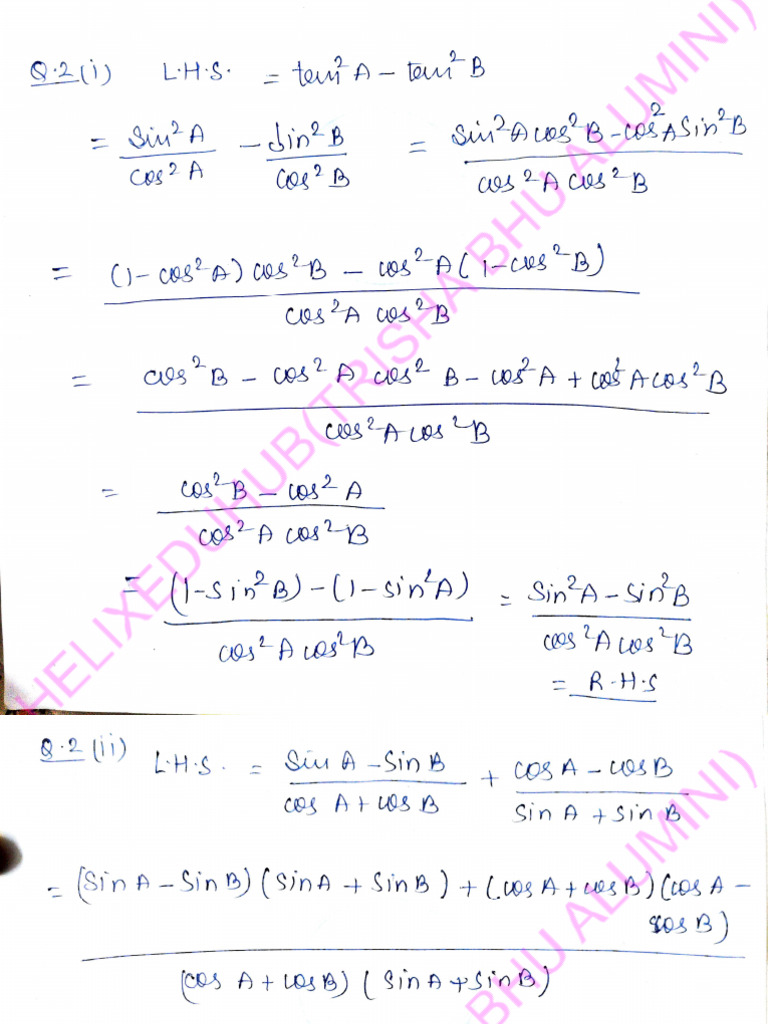 Q.2(i) L.H.S. = tan²A - tan²B
= sin²A/cos²A - sin²B/cos²B = sin²A cos²B - cos²A sin²B / cos²A cos²B
= (1 - cos²A) cos²B - cos²A (1 - cos²B) / cos²A cos²B
= cos²B - cos²A cos²B - cos²A + cos²A cos²B / cos²A cos²B
= cos²B - cos²A / cos²A cos²B
= (1 - sin²B) - (1 - sin²A) / cos²A cos²B = sin²A - sin²B / cos²A cos²B
= R.H.S
Q.2(ii) L.H.S. = sin A - sin B / cos A + cos B + cos A - cos B / sin A + sin B
= (sin A - sin B) (sin A + sin B) + (cos A + cos B) (cos A - cos B) / (cos A + cos B) (sin A + sin B)
HELIXEDUHUB(TRISHA BHU ALUMINI)
BHU ALUMINI)